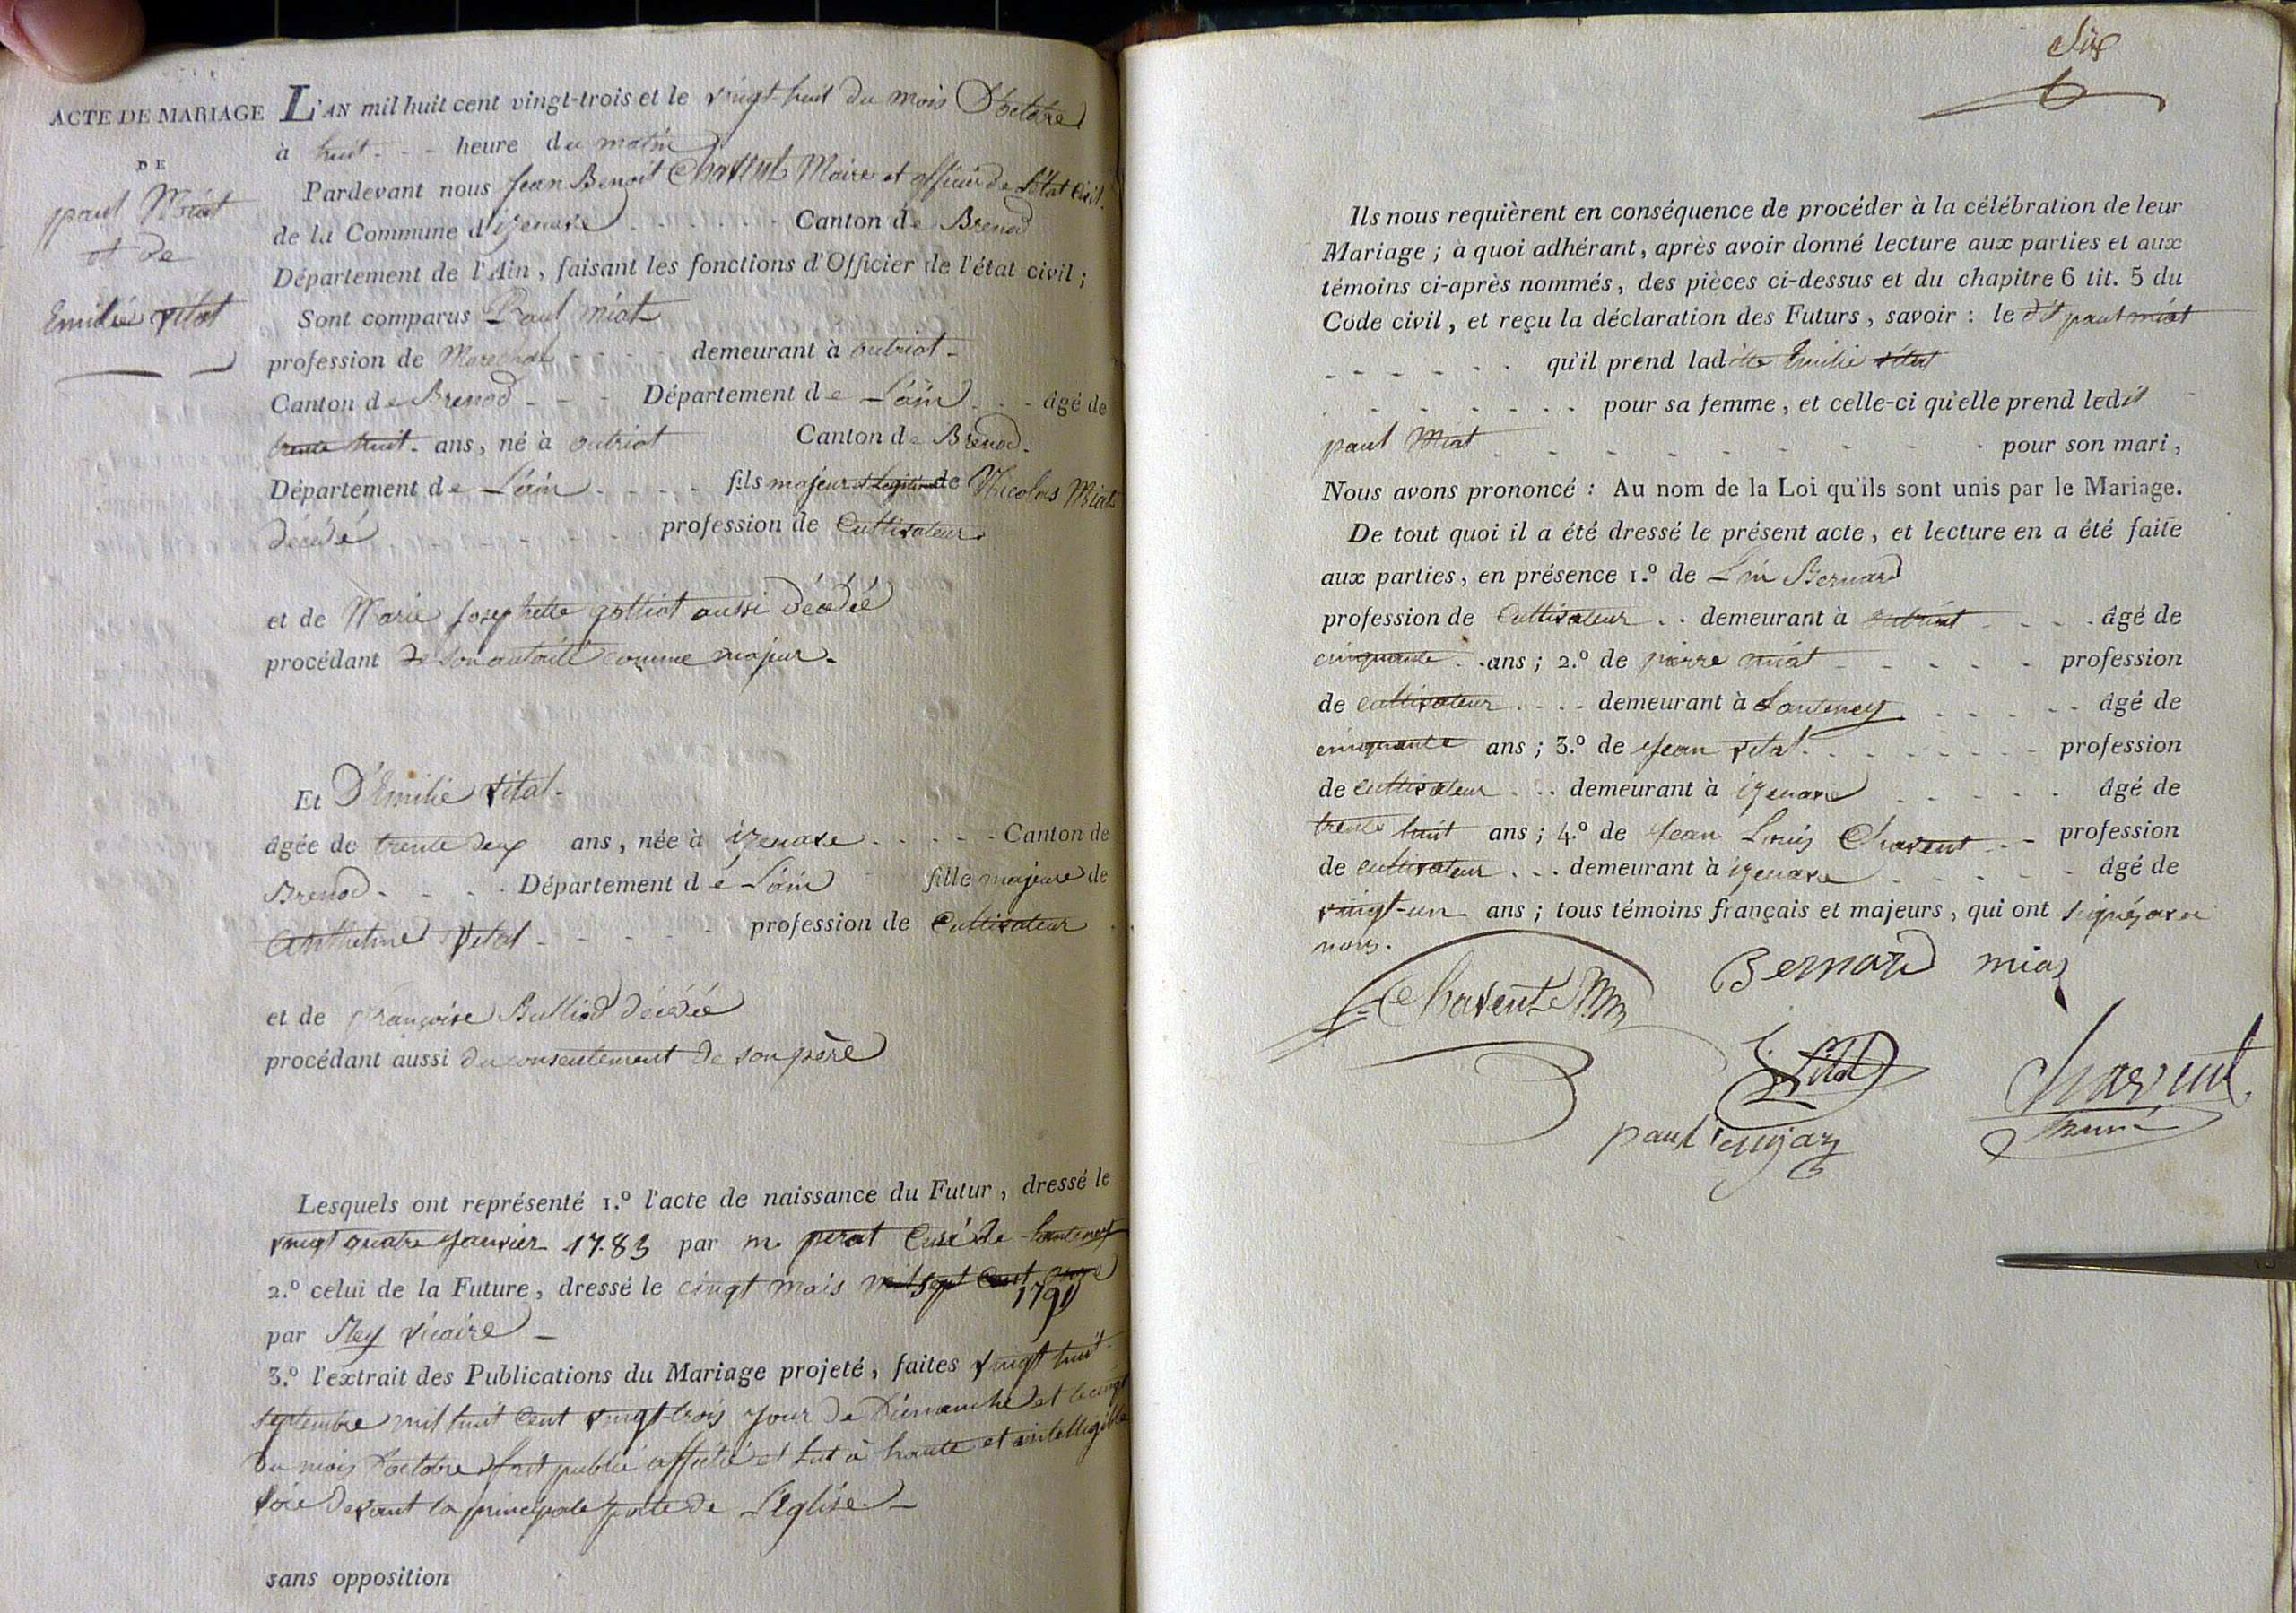 ACTE DE MARIAGE
DE
paul Miat
et de
Emilie Vital
L'AN mil huit cent vingt-trois et le vingt huit du mois D'octobre
à huit - - heure du matin
Pardevant nous Jean Benoit Chavent Maire et officier de l'Etat Civil
de la Commune d'izenave - - - - Canton de Brenod
Département de l'Ain, faisant les fonctions d'Officier de l'état civil ;
Sont comparus Paul miat
profession de Marechal - - - - demeurant à outriat -
Canton de Brenod - - - Département de L'ain - - - âgé de
trente huit - ans, né à outriat Canton de Brenod -
Département de L'ain - - - - fils majeur et Legitime de Nicolas Miat
décédé - - - - profession de Cultivateur
et de Marie Josephette golliat aussi décédée
procédant de son autorité comme majeur -
Et D'Emilie Vital -
âgée de trente deux ans, née à izenave - - - - Canton de
Brenod - - - - Département de L'ain fille majeure de
Anthelme Vital - - - - - profession de Cultivateur
et de françoise Bulliod décédée
procédant aussi du consentement de son père
Lesquels ont représenté 1.º l'acte de naissance du Futur, dressé le
vingt quatre janvier 1785 par m. perat Curé de Lantenay
2.º celui de la Future, dressé le cinqt mais mil sept Cent onze
1791
par Rey vicaire -
3.º l'extrait des Publications du Mariage projeté, faites vingt huit
septembre mil huit Cent vingt-trois jour de Dimanche et le cinqt
du mois d'octobre fait publié affiché et lut à haute et intelligible
voie devant la principale porte de L'Eglise -
sans opposition
Six
Ils nous requièrent en conséquence de procéder à la célébration de leur
Mariage ; à quoi adhérant, après avoir donné lecture aux parties et aux
témoins ci-après nommés, des pièces ci-dessus et du chapitre 6 tit. 5 du
Code civil, et reçu la déclaration des Futurs, savoir : le dit paul miat
- - - - - - qu'il prend ladite Emilie vital
- - - - - - pour sa femme, et celle-ci qu'elle prend ledit
paul Miat - - - - - - - pour son mari,
Nous avons prononcé : Au nom de la Loi qu'ils sont unis par le Mariage.
De tout quoi il a été dressé le présent acte, et lecture en a été faite
aux parties, en présence 1.º de Bernard
profession de Cultivateur - - demeurant à outriat - - - - âgé de
cinquante - - ans ; 2.º de pierre miat - - - - - profession
de cultivateur - - - - demeurant à Lantenay - - - - - âgé de
cinquante ans ; 3.º de Jean vital - - - - - - profession
de cultivateur - - - demeurant à izenave - - - - - âgé de
trente huit ans ; 4.º de Jean Louis Chavent - - - profession
de cultivateur - - - demeurant à izenave - - - - - âgé de
vingt-un ans ; tous témoins français et majeurs, qui ont signé avec
nous.
Chavent Bernard miaz
J. Vital
Chavent
paul miaz
Maire